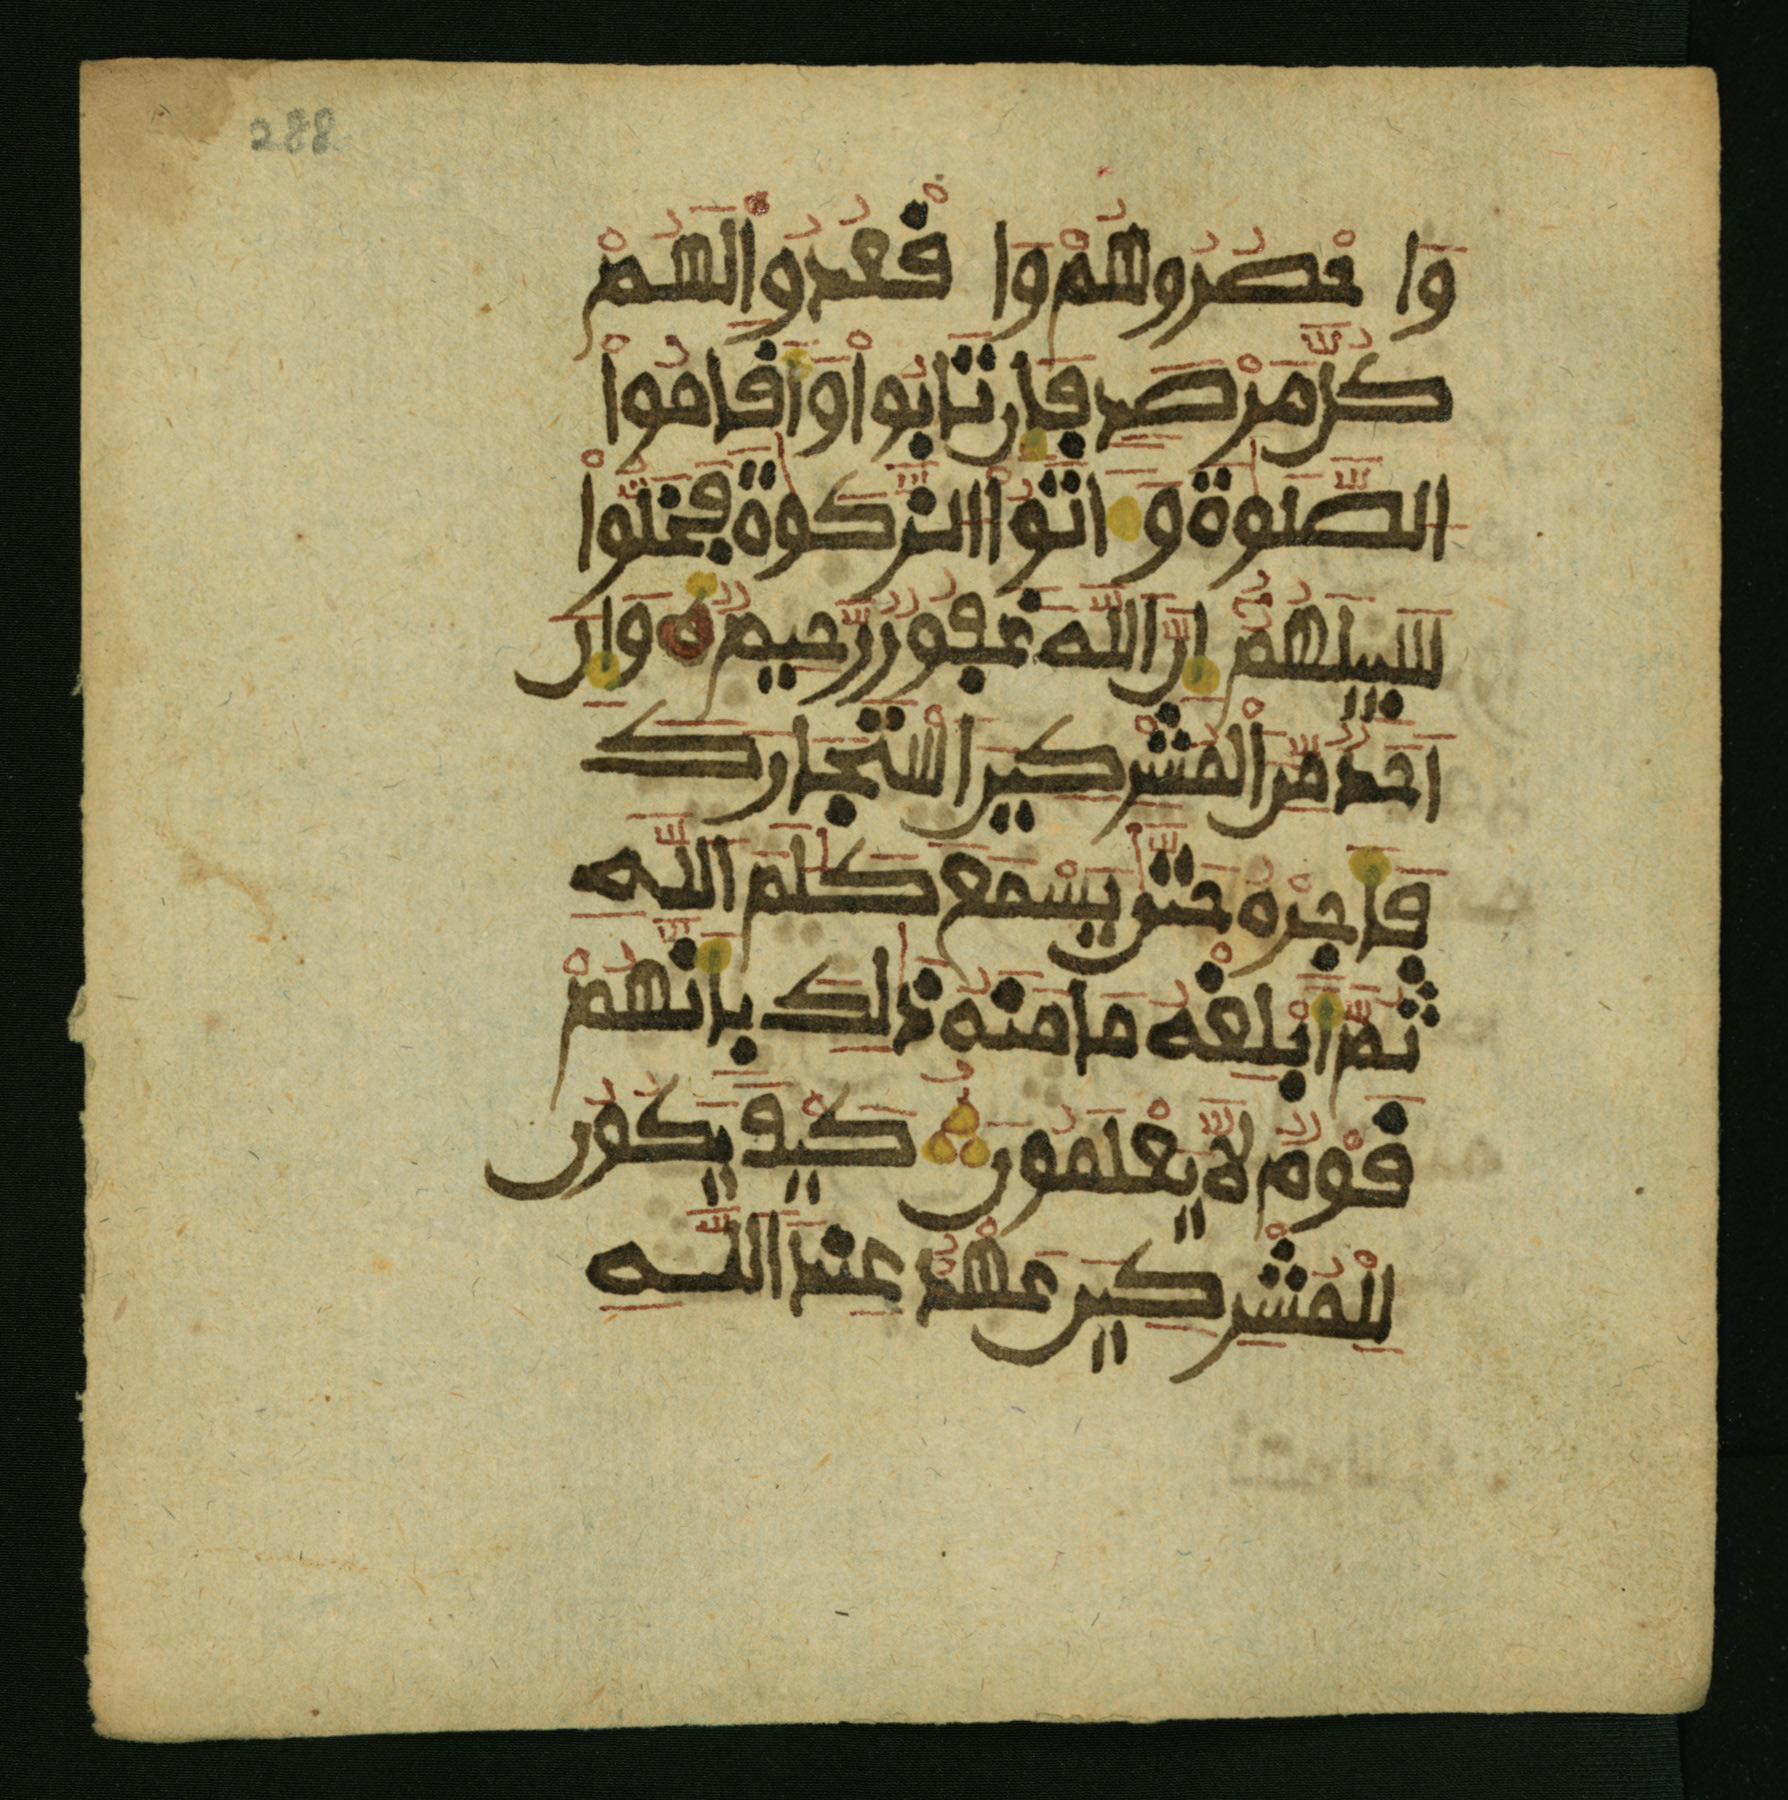 288
وَاحْصُرُوهُمْ وَاقْعُدُوا لَهُمْ
كُلَّ مَرْصَدٍ فَإِن تَابُوا وَأَقَامُوا
الصَّلَوٰةَ وَءَاتَوُا الزَّكَوٰةَ فَخَلُّوا
سَبِيلَهُمْ إِنَّ اللَّهَ غَفُورٌ رَّحِيمٌ وَإِنْ
أَحَدٌ مِّنَ الْمُشْرِكِينَ اسْتَجَارَكَ
فَأَجِرْهُ حَتَّىٰ يَسْمَعَ كَلَٰمَ اللَّهِ
ثُمَّ أَبْلِغْهُ مَأْمَنَهُ ذَٰلِكَ بِأَنَّهُمْ
قَوْمٌ لَّا يَعْلَمُونَ كَيْفَ يَكُونُ
لِلْمُشْرِكِينَ عَهْدٌ عِندَ اللَّهِ